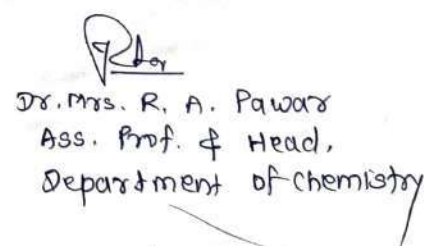 Dr. Mrs. R. A. Pawar
Ass. Prof. & Head,
Department of Chemistry